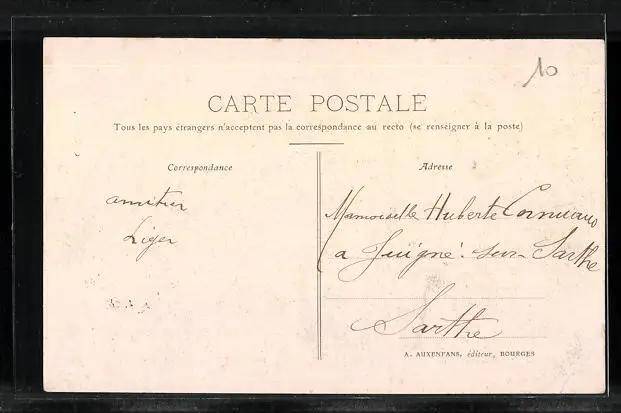 10
CARTE POSTALE
Tous les pays étrangers n'acceptent pas la correspondance au recto (se renseigner à la poste)
Correspondance
amitier
Liger
Adresse
Mamoiselle Huberte Cornuau
a Juigné-sur-Sarthe
Sarthe
A. AUXENFANS, éditeur, BOURGES